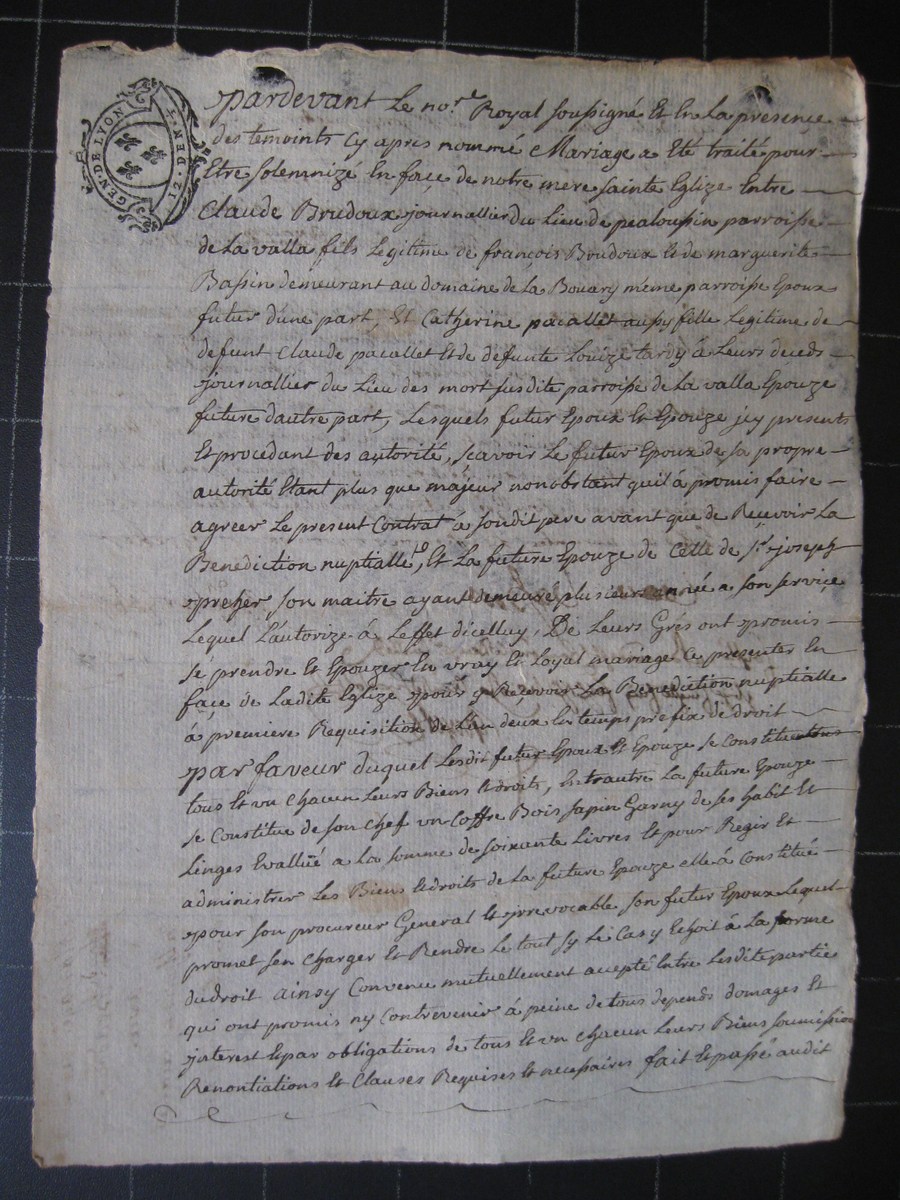 GEN. DE LYON 12. DEN. T.
pardevant Le no.re Royal soussigné Et En La presence
des temoints Cy apres nommé Mariage a Eté traité pour
Etre solemnizé En façe de notre mere sainte Eglize Entre
Claude Brudoux journallier du Lieu de pealoussin parroisse
de La valla fils Legitime de françois Brudoux Et de marguerite
Bassin demeurant au domaine de La Bouary même parroisse Epoux
futur d'une part, Et Catherine pacallet aussy fille Legitime de
defunt Claude pacallet Et de defunte Louize tardy á Leurs deceds
journallier du Lieu des mort susdite parroisse de La valla Epouze
future dautre part, Lesquels futur Epoux Et Epouze jcy presents
Et procedant des autorité, scavoir Le futur Epoux de sa propre
autorité Etant plus que majeur nonobstant quil á promis faire
agreer Le present Contrat á soudit pere avant que de Recevoir La
Benediction nuptialle, Et La future Epouze de Celle de S.r joseph
preher son maitre ayant demeuré plusieurs année a son service
Lequel L'autorize á Leffet d'icelluy, De Leurs Grés ont promis
sé prendre Et Epouzer En vray Et Loyal mariage Ce presenter En
façe de Ladite Eglize pour y Reçevoir La Benediction nuptialle
á premiere Requisition de L'un deux En temps prefix de droit
par faveur duquel Lesdit futur Epoux Et Epouze se Constituent
tous Et un Chacun Leurs Biens Et droits, Entrautre La future Epouze
se Constitue de son Chef un Coffre Bois sapin Garny de ses habit Et
Linges Evallüé a La somme de soixante Livres Et pour Regir Et
administrer Les Biens Et droits de La future Epouze elle á Constitué
pour son procureur General Et jrrevocable son futur Epoux Lequel
promet sen Charger Et Rendre Le tout sy Le Cas y Echoit á La forme
du droit ainsy Convenu mutuellement accepté Entre Lesdite partie
qui ont promis ny Contrevenir á peine de tous depends domages Et
jnterest Et par obligations de tous Et un Chacun Leurs Biens soumission
Renontiations Et Clauses Requises Et necessaires fait Et passé audit